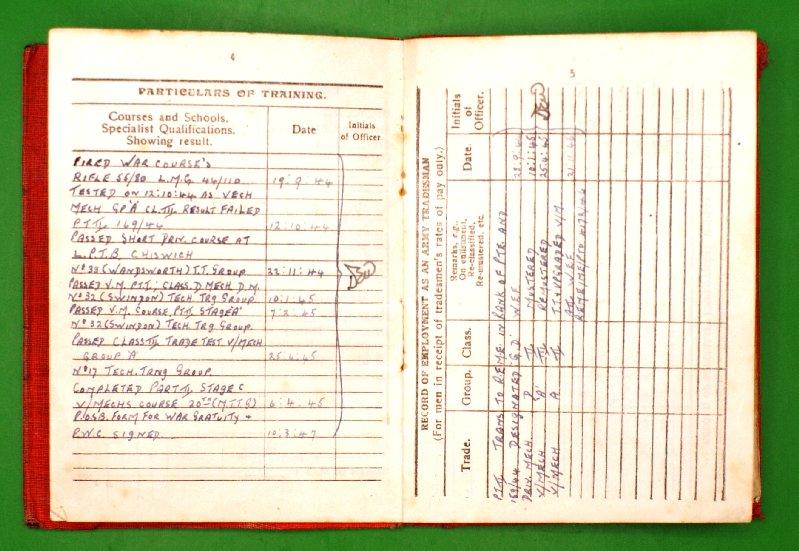 4
PARTICULARS OF TRAINING.
Courses and Schools. Specialist Qualifications. Showing result.
Date
Initials of Officer
FIRED WAR COURSE'S
RIFLE 55/80 L.M.G 44/110 19.9.44
TESTED ON 12:10:44 AS VECH
MECH GP'A' CL.III RESULT FAILED
PTII 169/44 12.10.44
PASSED SHORT DRIV. COURSE AT
L.P.T.B. CHISWICH
No 38 (WANDSWORTH) T.T. GROUP. 22:11:44
PASSED V.M. PT.I; CLASS.D MECH D.M.
No 32 (SWINDON) TECH. TRG GROUP. 10.1.45
PASSED V.M. COURSE, PTII STAGE'A' 7.2.45
No 32 (SWINDON) TECH. TRG GROUP.
PASSED CLASS III TRADE TEST V/MECH
GROUP 'A' 25.4.45
No 17 TECH. TRNG GROUP.
COMPLETED PART II STAGE C
V/MECHS COURSE 20TH (M.T.T.G) 6.4.45
P.O.S.B. FORM FOR WAR GRATUITY +
P.W.C. SIGNED 10.3.47
5
RECORD OF EMPLOYMENT AS AN ARMY TRADESMAN
(For men in receipt of tradesmen's rates of pay only.)
Trade.
Group.
Class.
Remarks, e.g., On enlistment, Re-classified, Re-mustered, etc.
Date.
Initials of Officer.
PTII TRANS TO R.E.M.E. IN RANK OF PTE. AND
169/44 DESIGNATED 'G.D' WEF 28.9.44
DRIV. MECH D III MUSTERED 10:1:45
V/MECH 'A' III REMUSTERED 25.4.45
V/MECH A II T.T. & UPGRADED V/M.
WEF 21.11.46